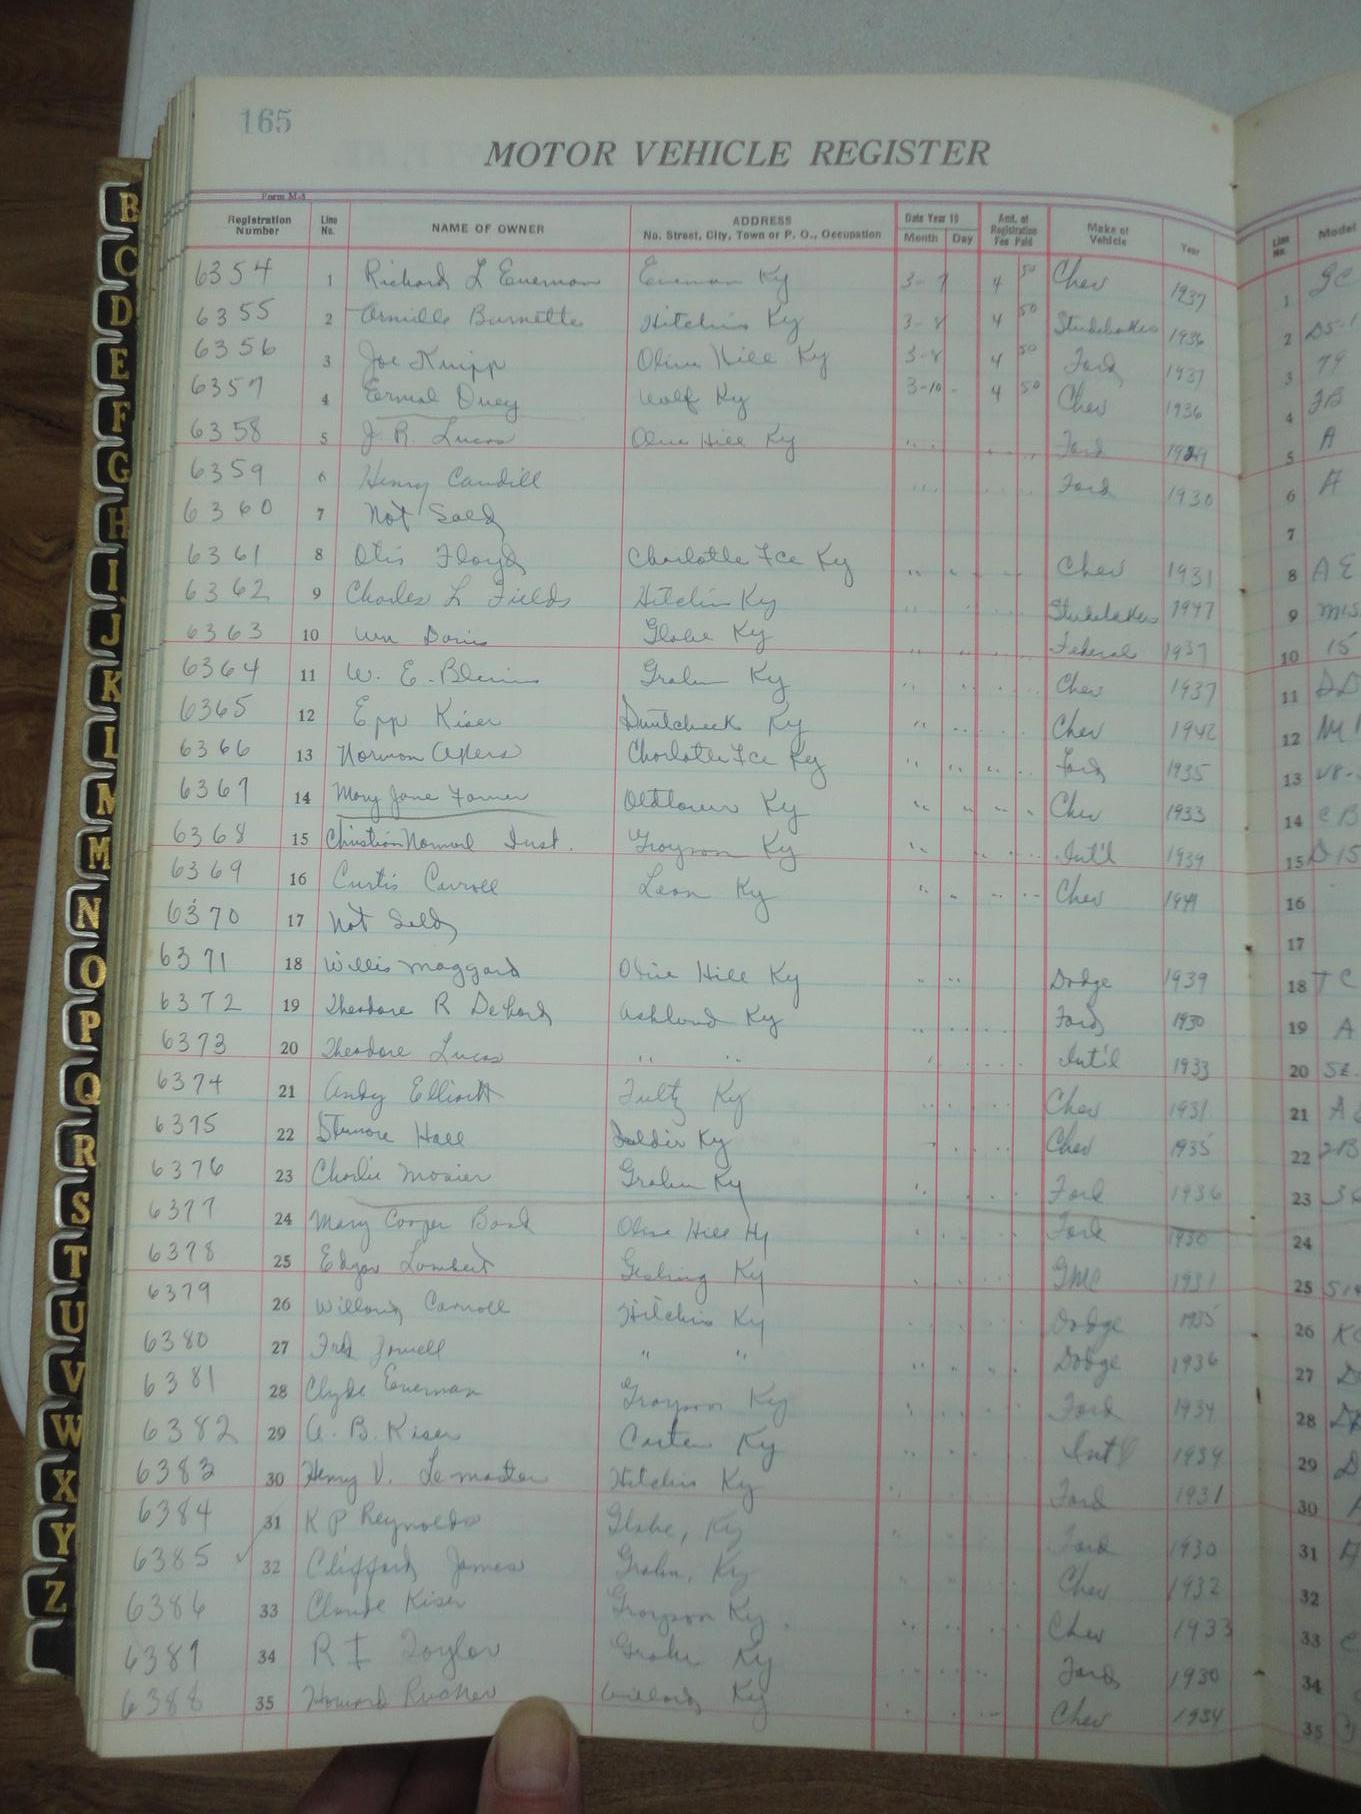 165
MOTOR VEHICLE REGISTER
Form M-4
Registration Number Line No. NAME OF OWNER ADDRESS No. Street, City, Town or P. O., Occupation Date Year 19 Month Day Amt. of Registration Fee Paid Make of Vehicle Year Line No. Model
6354 1 Richard L Everman Everman Ky 3-7 4 50 Chev 1937 1
6355 2 Burnette Hitchins Ky 3-8 4 50 Studebaker 1936 2
6356 3 Joe Knipp Olive Hill Ky 3-8 4 50 Ford 1937 3 79
6357 4 Ermal Duey Wolf Ky 3-10 - 4 50 Chev 1936 4 FB
6358 5 J. R. Lucas Olive Hill Ky " " Ford 1929 5 A
6359 6 Henry Caudill " " Ford 1930 6 A
6360 7 Not Sold 7
6361 8 Otis Floyd Charlotte Fce Ky " " Chev 1931 8 AE
6362 9 Charles L Fields Hitchin Ky " " Studebaker 1947 9
6363 10 Wm Davis Globe Ky " " Federal 1937 10 15
6364 11 W. E. Grahn Ky " " Chev 1937 11
6365 12 Epp Kiser Ky " " Chev 1942 12
6366 13 Norman Akers Charlotte Fce Ky " " Ford 1935 13 V8-
6367 14 Mary Jane Oldtown Ky " " Chev 1933 14 CB
6368 15 Christian Normal Inst. Grayson Ky " " Int'l 1939 15 D15
6369 16 Curtis Carroll Leon Ky " " Chev 16
6370 17 Not Sold 17
6371 18 Willis Maggard Olive Hill Ky " " Dodge 1939 18 TC
6372 19 Theodore R DeHard Ashland Ky " " Ford 1930 19 A
6373 20 Theodore Lucas " " Int'l 1933 20
6374 21 Andy Elliott Fultz Ky " " Chev 1931 21 A
6375 22 Hall Soldier Ky " " Chev 1935 22
6376 23 Charlie Mosier Grahn Ky " " Ford 1936 23
6377 24 Mary Cooper Bond Olive Hill Ky " " Ford 1930 24
6378 25 Edgar Lambert Gesling Ky " " GMC 1931 25
6379 26 Willard Carroll Hitchins Ky " " Dodge 1935 26
6380 27 Fred " " Dodge 1936 27
6381 28 Clyde Everman Grayson Ky " " Ford 1934 28
6382 29 A. B. Kiser Carter Ky " " Int'l 1939 29
6383 30 Henry V. Lemaster Hitchins Ky Ford 1931 30
6384 31 K P Reynolds Globe, Ky Ford 1930 31
6385 ✓ 32 Clifford James Grahn, Ky Chev 1932 32
6386 33 Claude Kiser Grayson Ky. " " Chev 1933 33
6387 34 R I Taylor Grahn Ky " " Ford 1930 34
6388 35 Howard Rucker Willard Ky " " Chev 1934 35
B
C
D
E
F
G
H
I
J
K
L
M
M
N
O
P
Q
R
S
T
U
V
W
X
Y
Z